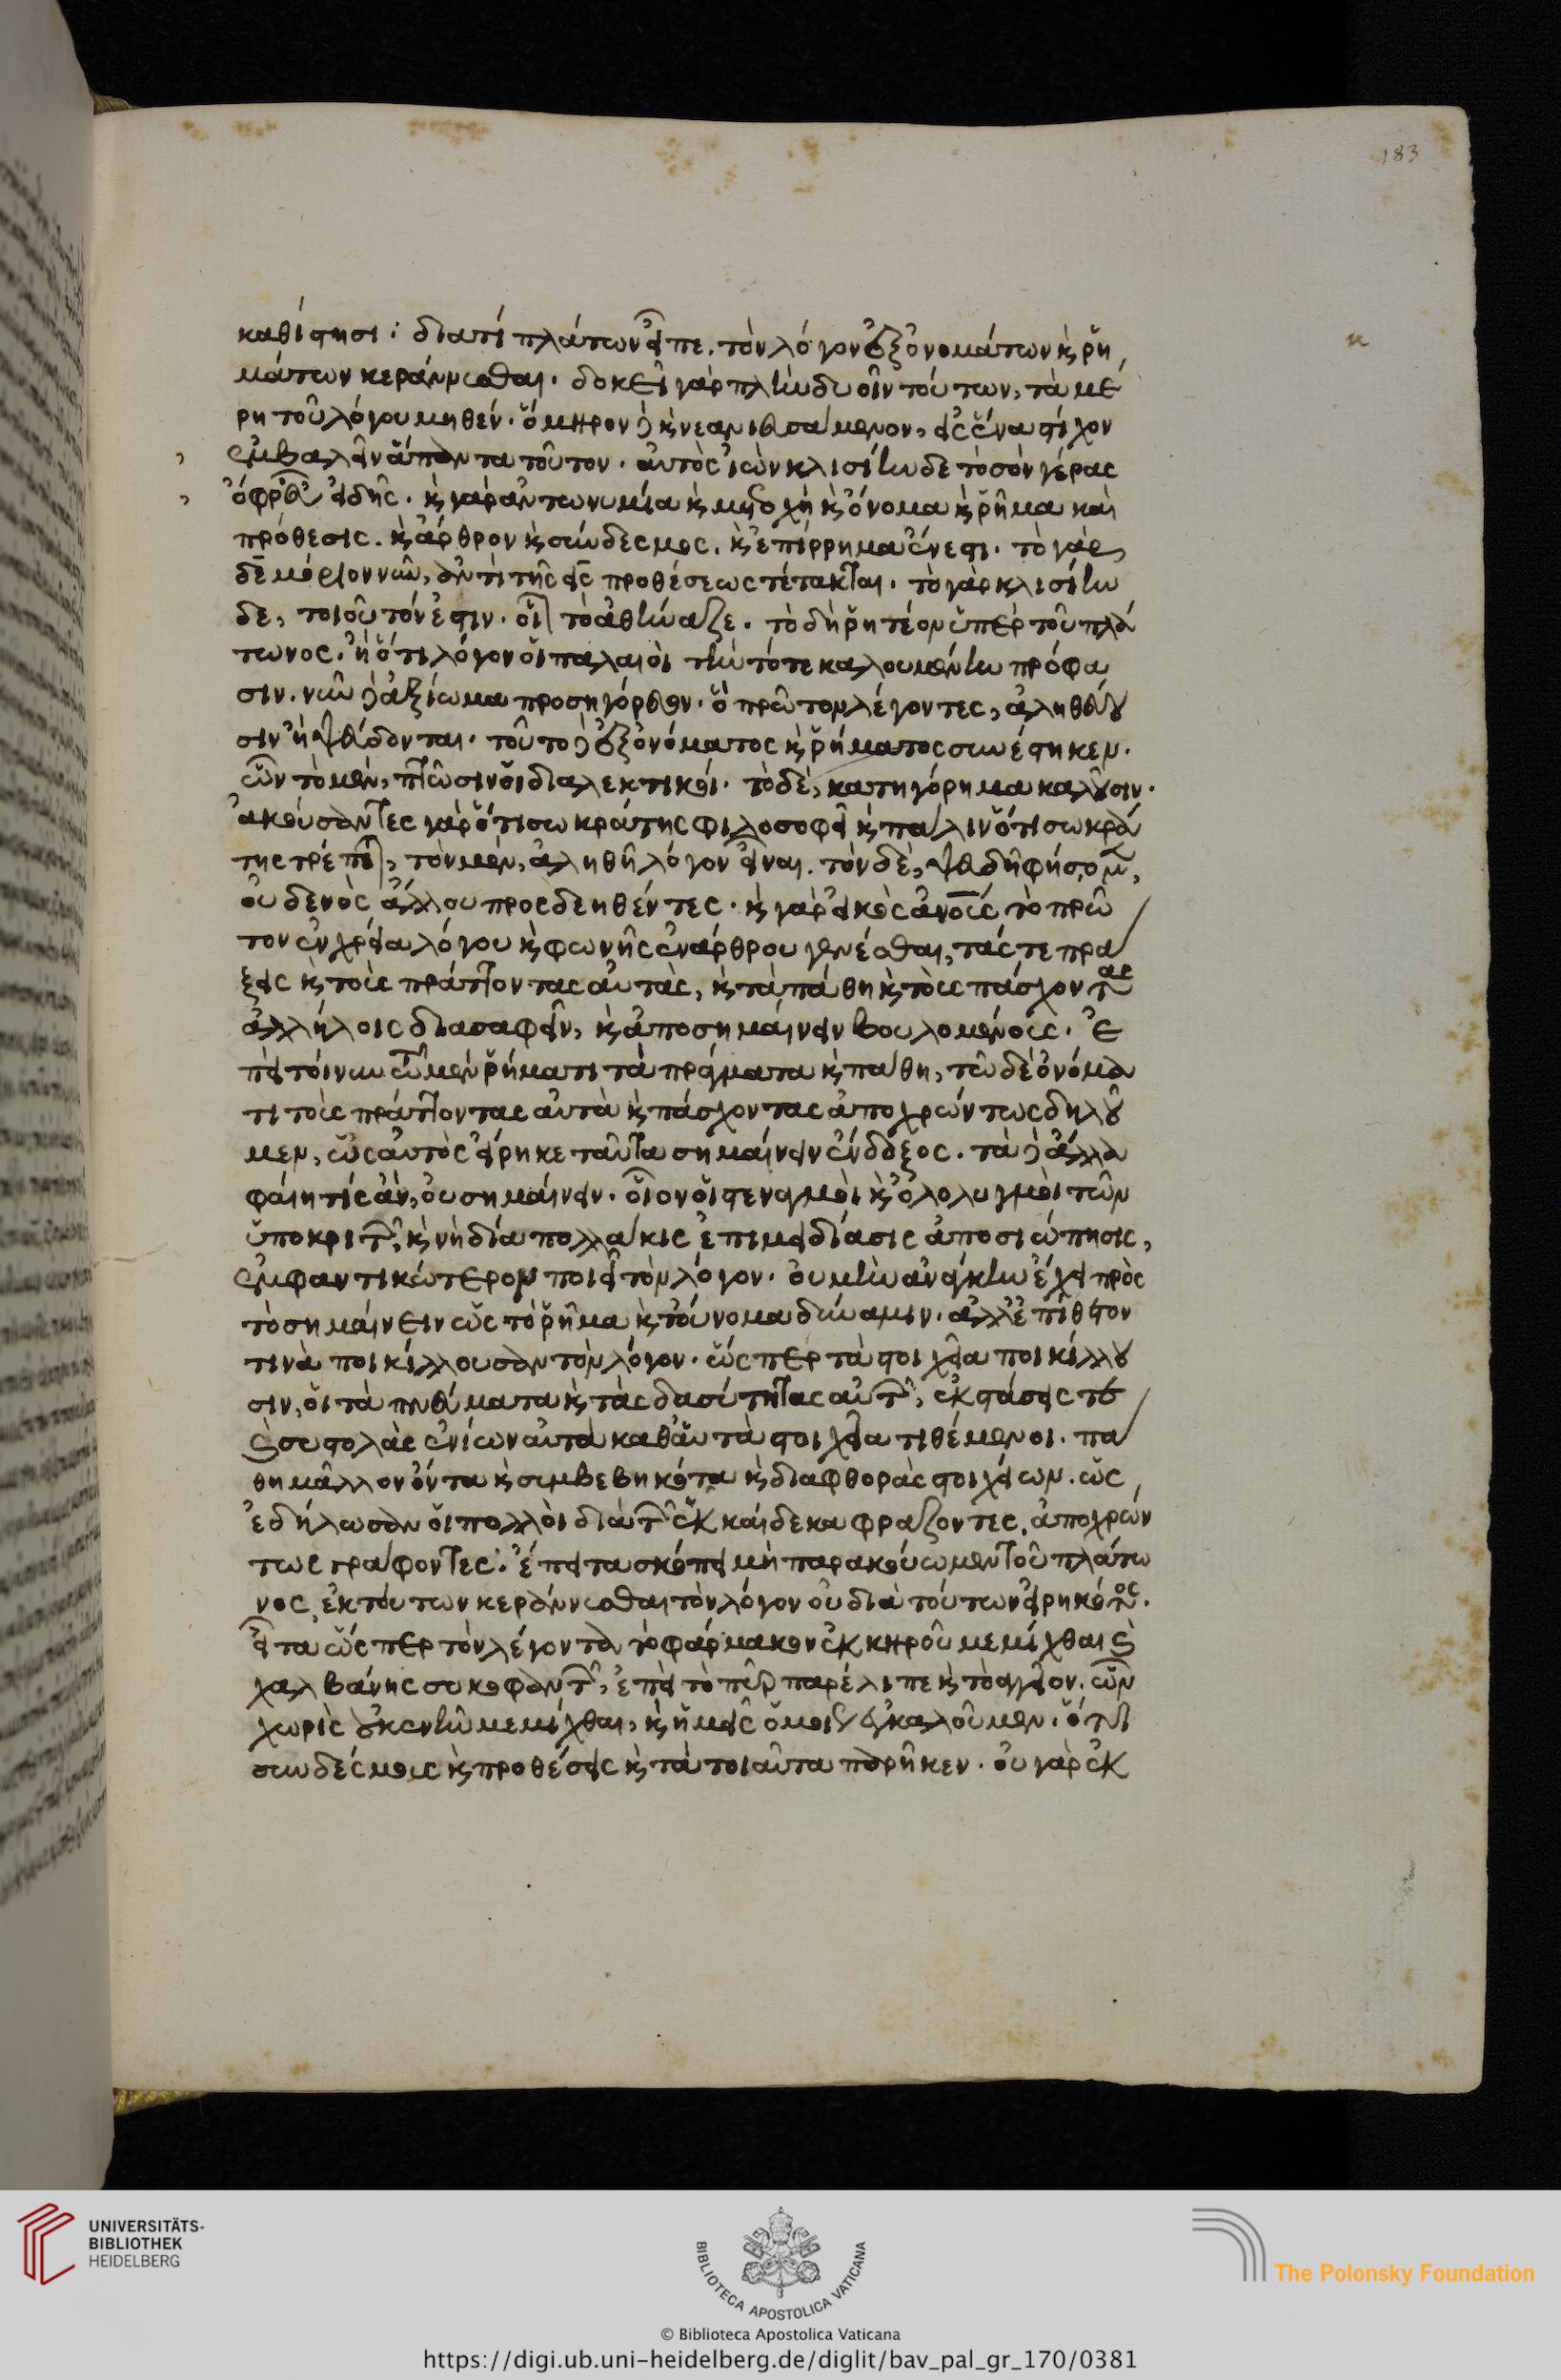 183
καθίστησι: διατί πλάτων εἶπε. τὸν λόγον ἐξ ὀνομάτων κ̀ ῥη
μάτων κεράννυσθαι. δοκεῖ γὰρ πλὴν δυοῖν τούτων, τὰ μέ
ρη τοῦ λόγου μηθέν. ὅμηρον δὲ κ̀ νεανιευσάμενον, εἰς ἕνα στίχον
ἐμβαλεῖν ἅπαντα τοῦτον. αὐτὸς ἰὼν κλισίην δε τὸ σὸν γέρας
ὄφρ' εὖ εἰδῇς. κ̀ γὰρ ἀντωνυμία κ̀ μετοχὴ κ̀ ὄνομα κ̀ ῥῆμα καὶ
πρόθεσις. κ̀ ἄρθρον κ̀ σύνδεσμος. κ̀ ἐπίρρημα ἔνεστι. τὸ γὰρ,
δε μόριον νῦν, ἀντὶ τῆς εἰς προθέσεως τέτακται. τὸ γὰρ κλισίην
δε, τοιοῦτόν ἐστιν. οἷον τὸ ἀθήναζε. τὸ δὴ ῥητέον ὑπὲρ τοῦ πλά
τωνος. ἢ ὅτι λόγον οἱ παλαιοὶ τὴν τότε καλουμένην πρόφα
σιν. νῦν δὲ ἀξίωμα προσηγόρευον. ὃ πρῶτον λέγοντες, ἀληθεύου
σιν ἢ ψεύδονται. τοῦτο δὲ ἐξ ὀνόματος κ̀ ῥήματος συνέστηκεν.
ὧν τὸ μὲν, πτῶσιν οἱ διαλεκτικοί. τὸ δὲ, κατηγόρημα καλοῦσιν.
ἀκούσαντες γὰρ ὅτι σωκράτης φιλοσοφεῖ κ̀ πάλιν ὅτι σωκρά
της τρέπεται, τὸν μὲν, ἀληθῆ λόγον εἶναι. τὸν δὲ, ψευδῆ φήσομεν,
οὐδενὸς ἄλλου προσδεηθέντες. κ̀ γὰρ εἰκὸς ἀνοις τὸ πρῶ
τον ἐν χρείᾳ λόγου κ̀ φωνῆς ἐνάρθρου γενέσθαι, τάς τε πρά
ξεις κ̀ τοὺς πράττοντας αὐτὰς, κ̀ τὰ πάθη κ̀ τοὺς πάσχοντας
ἀλλήλοις διασαφεῖν, κ̀ ἀποσημαίνειν βουλομένοις. ἐ
πεὶ τοίνυν τῷ μὲν ῥήματι τὰ πράγματα κ̀ πάθη, τῷ δὲ ὀνόμα
τι τοὺς πράττοντας αὐτὰ κ̀ πάσχοντας ἀποχρώντως δηλοῦ
μεν, ὡς αὐτὸς εἴρηκε ταῦτα σημαίνειν ἔνδοξος. τὰ δὲ ἄλλα
φαίη τίς ἂν, οὐ σημαίνειν. οἷον οἱ στεναγμοὶ κ̀ ὀλολυγμοὶ τῶν
ὑποκριτῶν, κ̀ νὴ δία πολλάκις ἐπιμειδίασις ἀποσιώπησις,
ἐμφαντικώτερον ποιεῖ τὸν λόγον. οὐ μὴν ἀνάγκην ἔχει πρὸς
τὸ σημαίνειν ὡς τὸ ῥῆμα κ̀ τοὔνομα δύναμιν. ἀλλ' ἐπίθετον
τινὰ ποικίλλουσαν τὸν λόγον. ὥσπερ τὰ στοιχεῖα ποικίλλου
σιν, οἱ τὰ πνεύματα κ̀ τὰς δασύτητας αὐτῶν, ἐκτάσεις τε
κ̀ συστολὰς ἐνίων αὐτὰ καθ' αὑτὰ στοιχεῖα τιθέμενοι. πά
θη μᾶλλον ὄντα κ̀ συμβεβηκότα κ̀ διαφθορὰς στοιχείων. ὡς
ἐδήλωσαν οἱ πολλοὶ διὰ τῶν ἑκκαίδεκα φράζοντες, ἀποχρών
τως γράφοντες. ἔπειτα σκόπει μὴ παρακούωμεν τοῦ πλάτω
νος, ἐκ τούτων κεράννυσθαι τὸν λόγον οὐ διὰ τούτων εἰρηκότος.
εἶτα ὥσπερ τὸν λέγοντα τὸ φάρμακον ἐκ κηροῦ μεμίχθαι κ̀
χαλβάνης συκοφαντῶν, ἐπεὶ τὸ πῦρ παρέλιπε κ̀ τὸ ἀγγεῖον. ὧν
χωρὶς οὐκ ἐνῆν μεμίχθαι, κ̀ ἡμεῖς ὁμοίως ἐγκαλοῦμεν. ὅτι
συνδέσμους κ̀ προθέσεις κ̀ τὰ τοιαῦτα παρῆκεν. οὐ γὰρ ἐκ
UNIVERSITÄTS-
BIBLIOTHEK
HEIDELBERG
BIBLIOTECA APOSTOLICA VATICANA
The Polonsky Foundation
© Biblioteca Apostolica Vaticana
https://digi.ub.uni-heidelberg.de/diglit/bav_pal_gr_170/0381